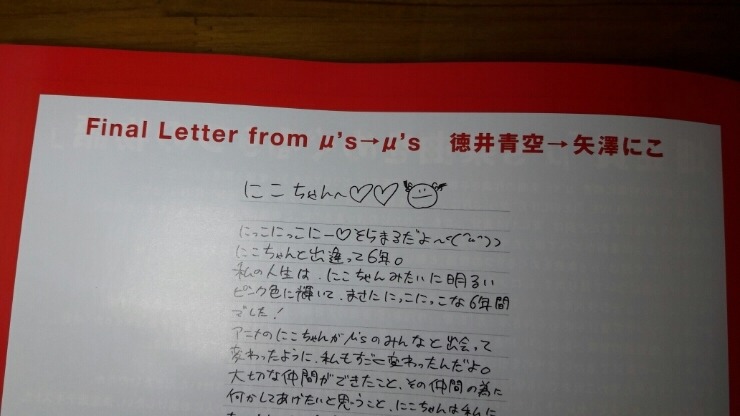 Final Letter from μ's→μ's 徳井青空→矢澤にこ
にこちゃん〜♡♡
にっこにっこにー♡そらまるだよ〜
にこちゃんと出逢って6年。
私の人生は、にこちゃんみたいに明るい
ピンク色に輝いて、まさににっこにっこな6年間
でした!
アニメのにこちゃんがμ'sのみんなと出会って
変わったように、私もすごく変わったんだよ。
大切な仲間ができたこと、その仲間の為に
何かしてあげたいと思うこと、にこちゃんは私に